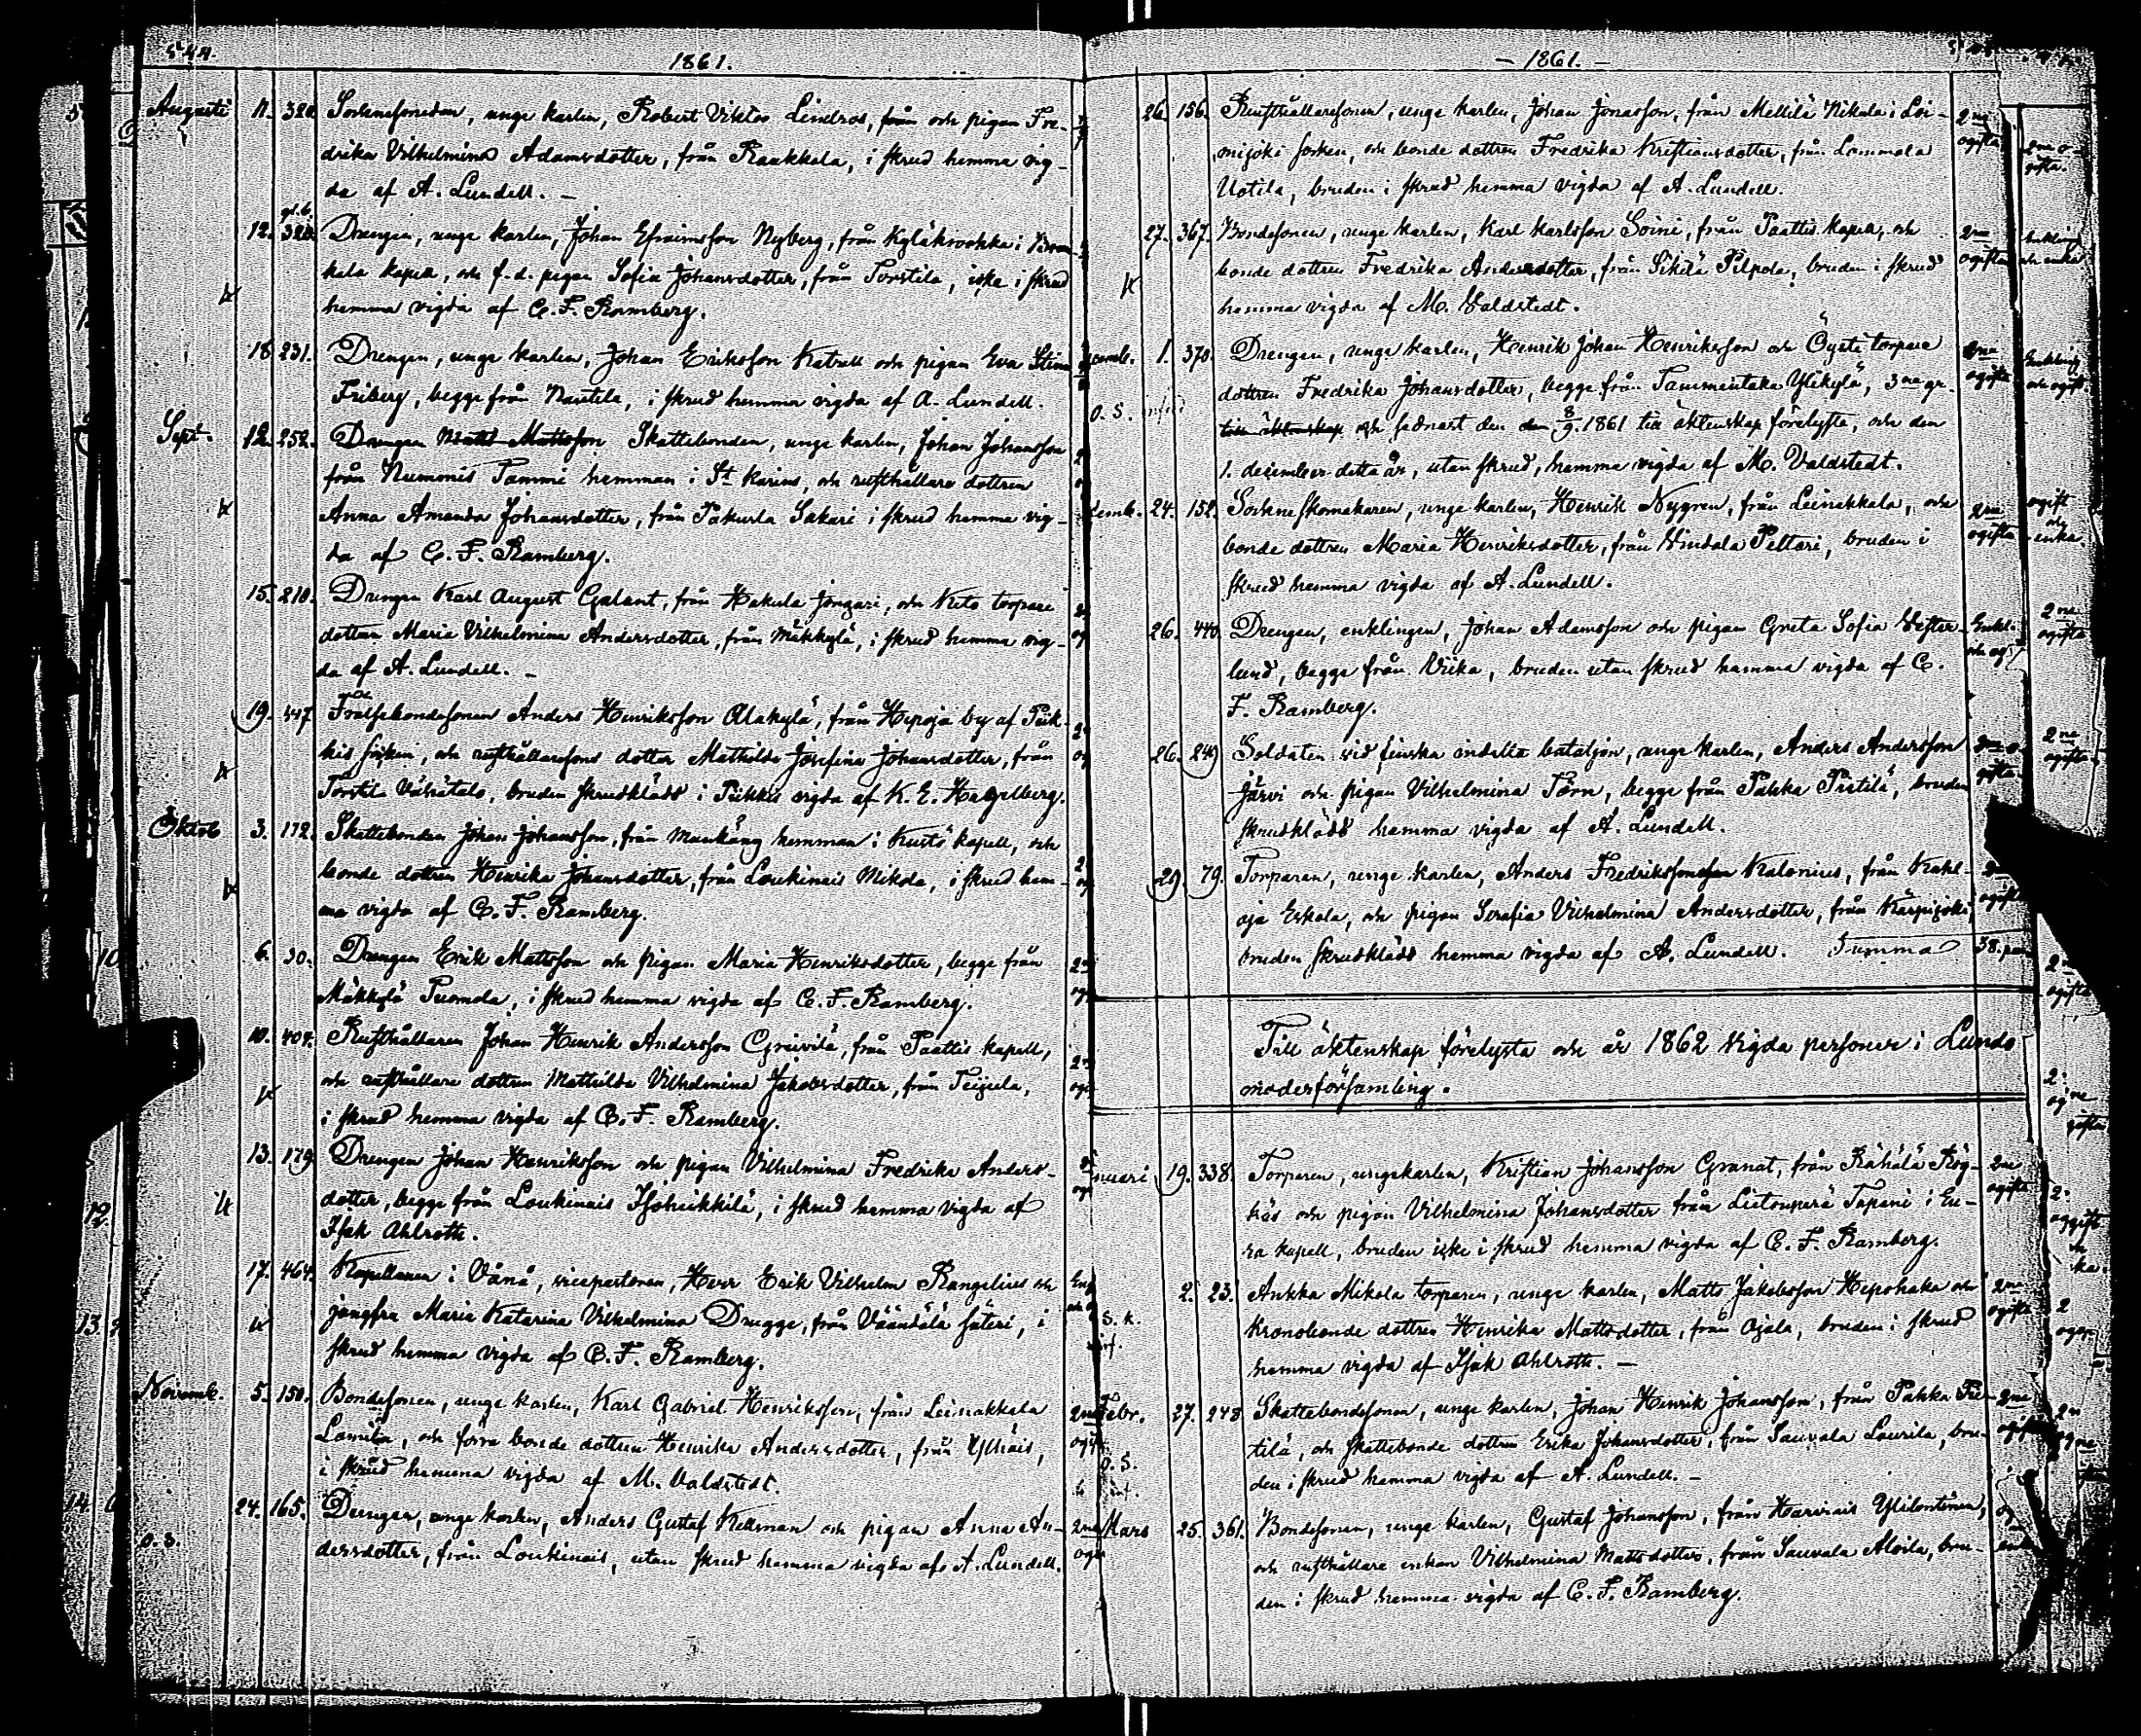 544.
1861.
Augusti 11. 320. Sockensmeden, unge karlen, Robert Viktor Lindros, från och pigan Fre-
drika Vilhelmina Adamsdotter, från Raukkala, i skrud hemma vig-
da af A. Lundell. –
12. 320. Drengen, unge karlen, Johan Efraimsson Nyberg, från Kyläkrookka i
kala kapell, och f.d. pigan Sofia Johansdotter, från Torstila, icke i skrud
hemma vigda af C. F. Ramberg.
18 231. Drengen, unge karlen, Johan Eriksson Katrall och pigan Eva Stina
Friberg, begge från Nautela, i skrud hemma vigda af A. Lundell.
Sept. 12. 252. Drengen Matts Mattsson Skattebonden, unge karlen, Johan Johansson
från Nummis Tammi hemman i St Karins, och rusthållare dottren
Anna Amanda Johansdotter, från Pakurla Sakari i skrud hemma vig-
da af C. F. Ramberg.
15. 210. Drengen Karl August Galant, från Hakula Jongari, och Keto torpare
dottren Maria Vilhelmina Andersdotter, från Mäkkylä, i skrud hemma vig-
da af A. Lundell. –
19. 447 Frälsebondesonen Anders Henriksson Alakylä, från Hepoja by af Pik-
kis socken, och rusthållaresons dotter Mathilda Josefina Johansdotter, från
Torstila Vähätalo, bruden skrudklädd i Pikkis vigda af K. E. Hagelberg.
Oktob 3. 172. Skattebonden Johan Johansson, från Munkäng hemman i Kustö kapell, och
bonde dottren Henrika Johansdotter, från Loukinais Mikola, i skrud hem-
ma vigda af C. F. Ramberg.
6. 30. Drengen Erik Mattsson och pigan Maria Henriksdotter, begge från
Mäkkylä Tuomola, i skrud hemma vigda af C. F. Ramberg.
10. 404. Rusthållaren Johan Henrik Andersson Greivilä, från Paattis kapell,
och rusthållare dottren Mathilda Vilhelmina Jakobsdotter, från Teijula,
i skrud hemma vigda af C. F. Ramberg.
13. 179. Drengen Johan Henriksson och pigan Vilhelmina Fredrika Anders-
dotter, begge från Loukinais Isoheikkilä, i skrud hemma vigda af
Isak Ahlroth.
17. 464. Kapellanen i Vånå, vicepastoren, Herr Erik Vilhelm Rangelius och
jungfru Maria Katarina Vilhelmina Drugge, från Väändälä säteri, i
skrud hemma vigda af C. F. Ramberg.
Novemb. 5. 150. Bondesonen, unge karlen, Karl Gabriel Henriksson, från Leinakkala
och förra bonde dottren Henrika Andersdotter, från Yliväis,
i skrud hemma vigda af M. Valdstedt.
24. 165. Drengen, unge karlen, Anders Gustaf Kellman och pigan Anna An-
O. S. dersdotter, från Loukinais, utan skrud hemma vigda af A. Lundell.
– 1861. –
26. 156. Rusthållaresonen, unge karlen, Johan Jonasson, från Mellilä Nikula i Loi- 2ne
mijoki socken, och bonde dottren Fredrika Kristiansdotter, från Lammala ogifta
Uotila, bruden i skrud hemma vigda af A. Lundell.
27. 367. Bondesonen, unge karlen, Karl Karlsson Soini, från Paattis kapell, och 2ne
bonde dottren Fredrika Andersdotter, från Sikilä Pilpola, bruden i skrud ogifta
hemma vigda af M. Valdstedt.
1. 370. Drengen, unge karlen, Henrik Johan Henriksson och Öysti torpare 2ne
dottren Fredrika Johansdotter, begge från Tammentaka Ylikylä, 3ne gr. ogifta
O. S. till äktenskap och sednast den den 8/9. 1861 till äktenskap förelysta, och den
1. december detta år, utan skrud, hemma vigda af M. Valdstedt.
24. 152. Sockneskomakaren, unge karlen, Henrik Nygren, från Leinakkala, och 2ne
bonde dottren Maria Henriksdotter, från Vindala Pettari, bruden i ogifta
skrud hemma vigda af A. Lundell.
26. 440. Drengen, enklingen, Johan Adamsson och pigan Greta Sofia Vester- Enkl.
lund, begge från Viika, bruden utan skrud hemma vigda af C. och og
F. Ramberg.
26. 249 Soldaten vid finska indelta bataljon, unge karlen, Anders Andersson
Järvi och pigan Vilhelmina Törn, begge från Pakka Prittilä, bruden
skrudklädd hemma vigda af A. Lundell.
29. 79. Torparen, unge karlen, Anders Fredriksson Kalonius, från Kukl-
oja Eskola, och pigan Serafia Vilhelmina Andersdotter, från Karpijoki ogifta
bruden skrudklädd hemma vigda af A. Lundell. Summa 38. par
Till äktenskap förelysta och år 1862 vigda personer i Lundo
moderförsamling.
19. 338. Torparen, ungekarlen, Kristian Johansson Granat, från Rähälä Rög- 2ne
käs och pigan Vilhelmina Johansdotter från Lietonperä Tapani i Eu- ogifta
ra kapell, bruden icke i skrud hemma vigda af C. F. Ramberg.
2. 23. Aukka Mikola torparen, unge karlen, Matts Jakobsson Hepohaka och 2ne
S. K. kronobonde dottren Henrika Mattsdotter, från Ojala, bruden i skrud ogifta
hemma vigda af Isak Ahlroth. –
Febr. 27. 248 Skattebondesonen, unge karlen, Johan Henrik Johansson, från Pakka Prit- 2ne
tilä, och skattebonde dottren Erika Johansdotter, från Sauvala Laurila, bru- ogifta
O. S. den i skrud hemma vigda af A. Lundell. –
Mars 25. 361. Bondesonen, unge karlen, Gustaf Johansson, från Harvais Ylilontinen,
och rusthållare enkan Vilhelmina Mattsdotter, från Sauvala Aloila, bru-
den i skrud hemma vigda af C. F. Ramberg.